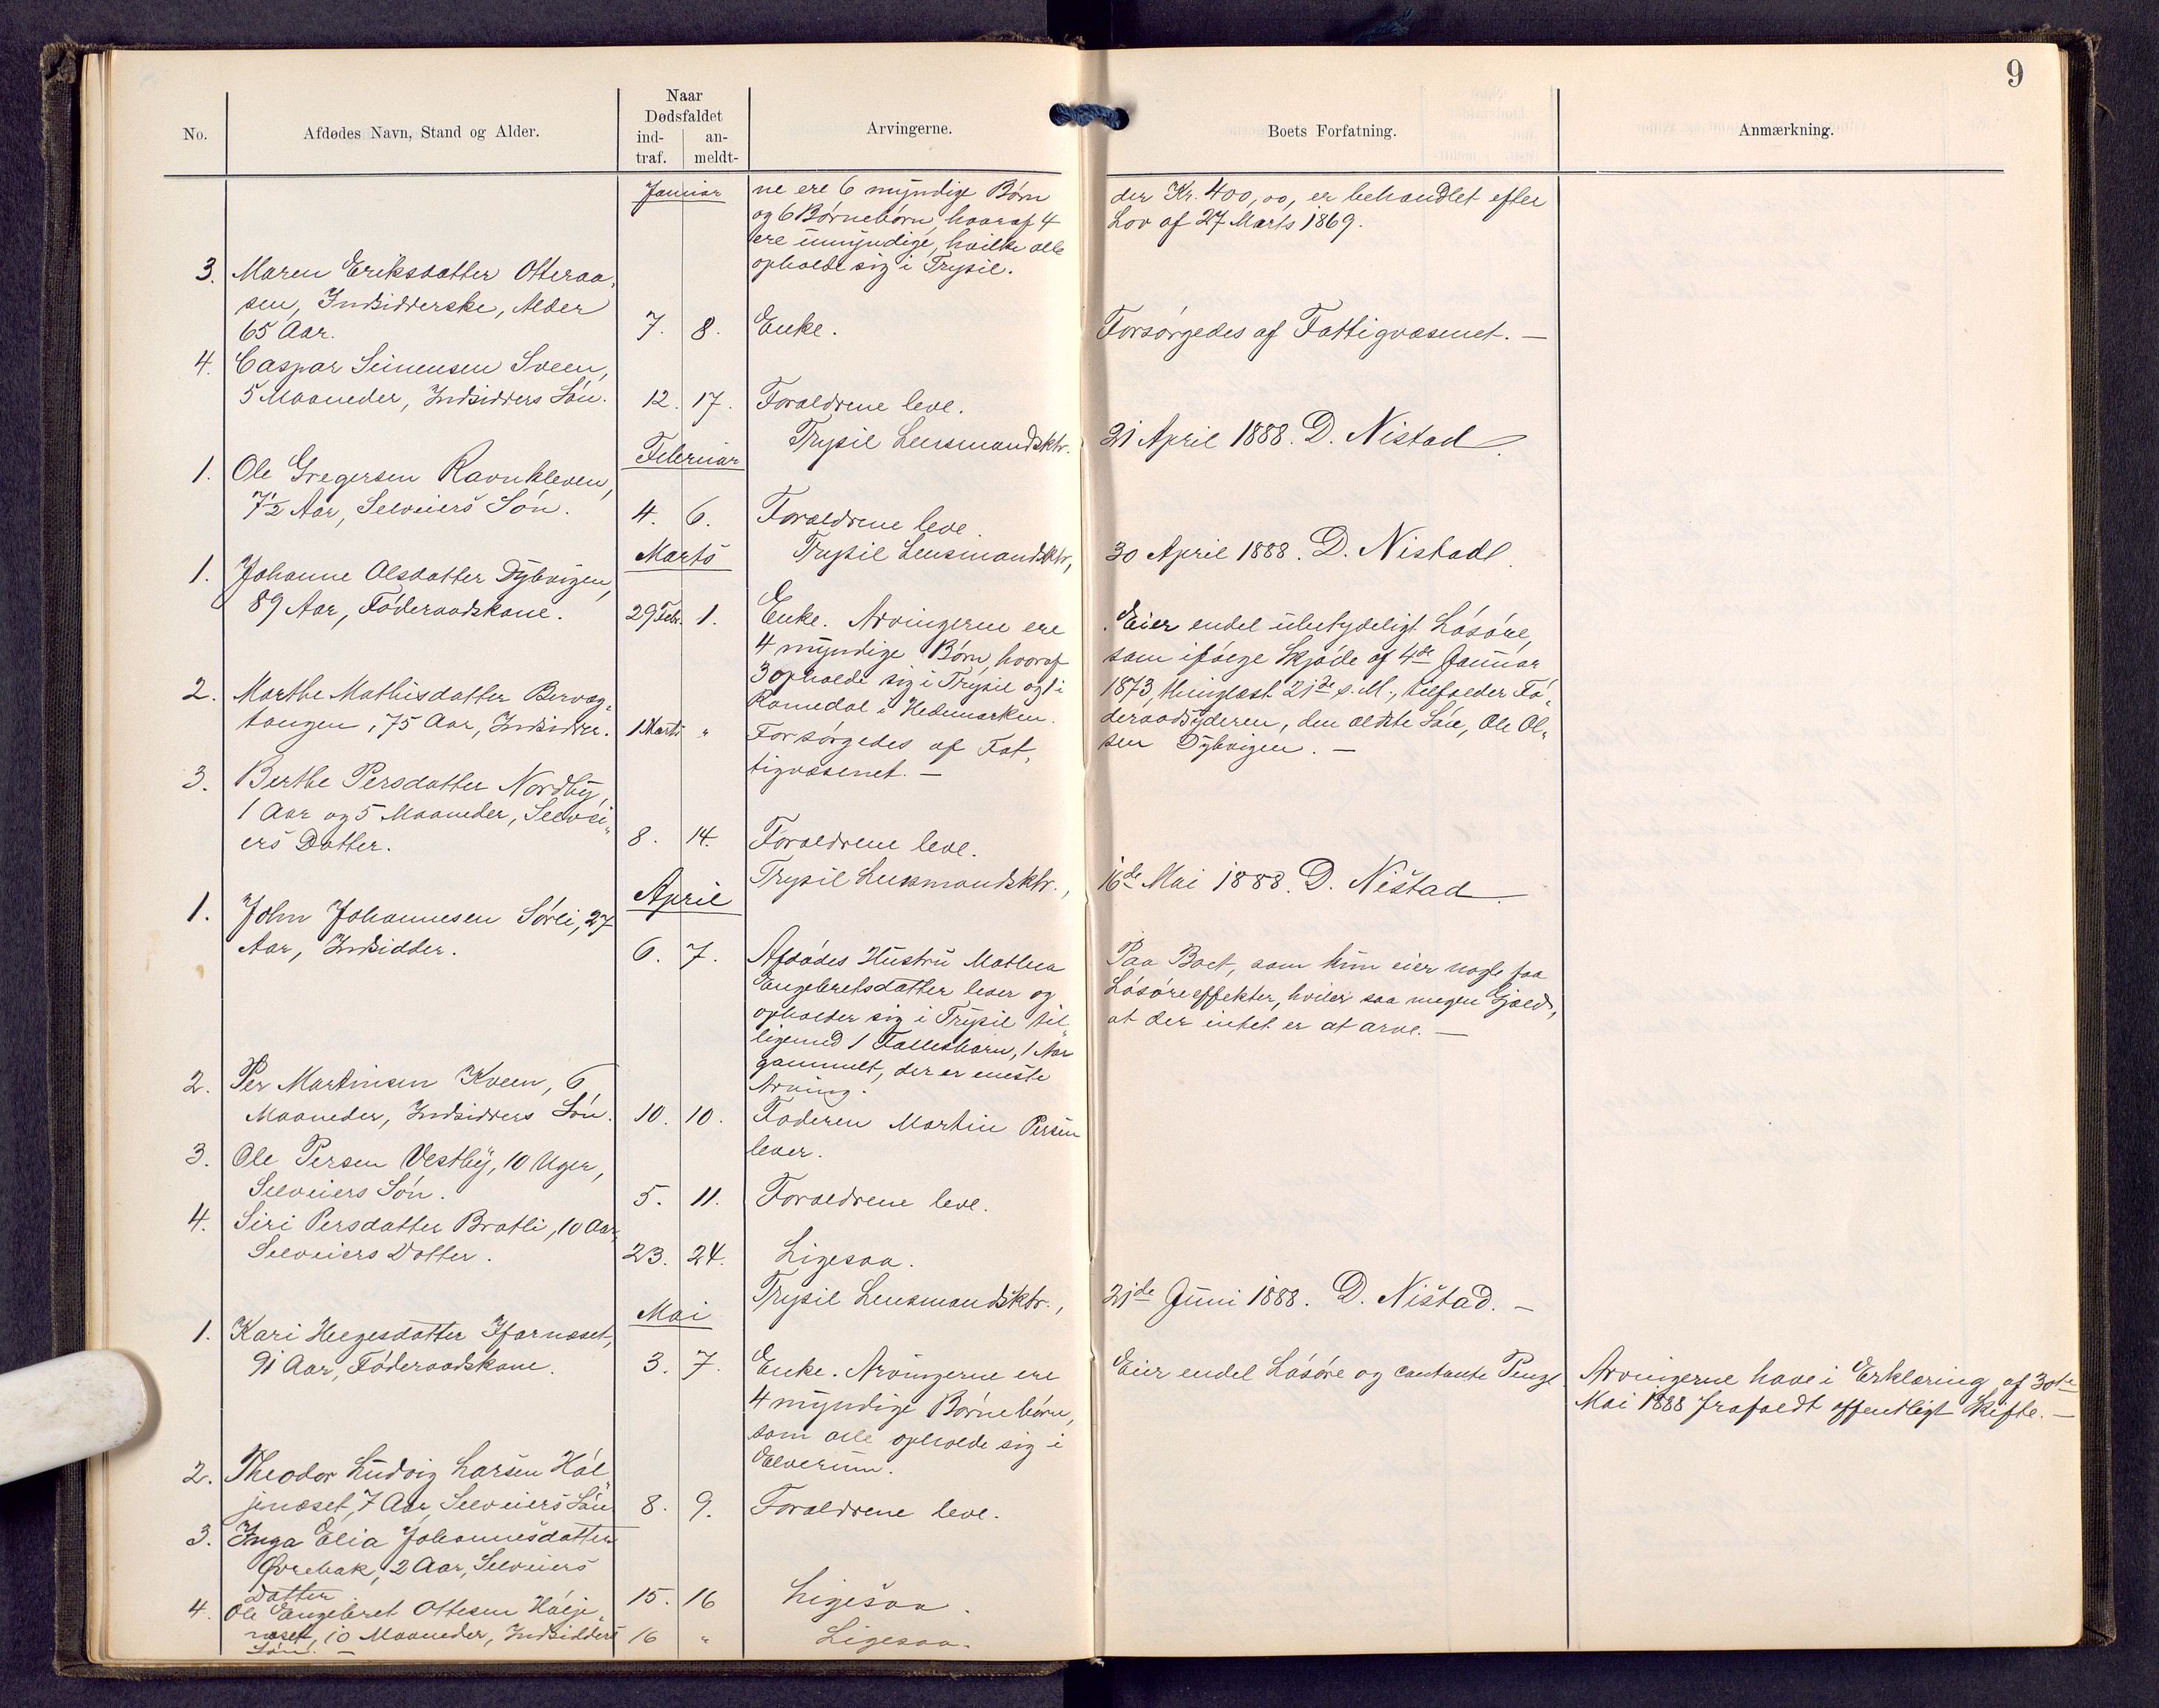 9
No.
Afdødes Navn, Stand og Alder.
Naar
Dødsfaldet
ind-
traf.
an-
meldt-
Arvingerne.
Boets Forfatning.
Anmærkning.
Januar
ne ere 6 myndige Børn
og 6 Børnebørn, hvoraf 4
ere umyndige, hvilke alle
opholde sig i Trysil.
der Kr. 400,00, er behandlet efter
Lov af 27 Marts 1869.
3. Maren Eriksdatter Otteraa-
sen, Indsidderske, Alder
65 Aar. 7. 8. Enke. Forsørgedes af Fattigvæsenet. —
4. Caspar Simensen Sveen,
5 Maaneder, Indsidders Søn. 12. 17. Forældrene leve.
Trysil Lensmandsktr. 21 April 1888. D. Nistad.
Februar
1. Ole Gregersen Ravnkleven,
7½ Aar, Selveiers Søn. 4. 6. Forældrene leve.
Trysil Lensmandsktr, 30 April 1888. D. Nistad.
Marts
1. Johanne Olsdatter Dybvigen,
89 Aar, Føderaadskone. 29 Febr. 1. Enke. Arvingerne ere
4 myndige Børn, hvoraf
3 opholde sig i Trysil og 1 i
Romedal i Hedemarken.
Eier endel ubetydeligt Løsøre,
som ifølge Skjøde af 4de Januar
1873, thinglæst 21de s. M., tilfalder Fø-
deraadsyderen, den ældste Søn, Ole Ol-
sen Dybvigen. —
2. Marthe Mathisdatter Bervog-
tangen, 75 Aar, Indsidder. 1 Marts " Forsørgedes af Fat-
tigvæsenet. —
3. Berthe Persdatter Nordby,
1 Aar og 5 Maaneder, Selvei-
ers Datter. 8. 14. Forældrene leve.
Trysil Lensmandsktr., 16de Mai 1888. D. Nistad.
April
1. John Johannesen Sørli, 27
Aar, Indsidder. 6. 7. Afdødes Hustru Mathea
Engebretsdatter lever og
opholder sig i Trysil til-
ligemed 1 Fællesbarn, 1 Aar
gammelt, der er eneste
Arving.
Paa Boet, som kun eier nogle faa
Løsøreeffekter, hviler saa megen Gjæld,
at der intet er at arve. —
2. Per Martinsen Kveen, 6
Maaneder, Indsidders Søn. 10. 10. Faderen Martin Persen
lever.
3. Ole Persen Vestby, 10 Uger,
Selveiers Søn. 5. 11. Forældrene leve.
4. Siri Persdatter Bratli, 10 Aar,
Selveiers Datter. 23. 24. Ligesaa.
Trysil Lensmandsktr., 21de Juni 1888. D. Nistad. —
Mai
1. Kari Helgesdatter Ifarnæset,
91 Aar, Føderaadskone. 3. 7. Enke. Arvingerne ere
4 myndige Børnebørn,
som alle opholde sig i
Elverum.
Eier endel Løsøre og contante Penge
Arvingerne have i Erklæring af 30te
Mai 1888 frafaldt offentligt Skifte. —
2. Theodor Ludvig Larsen Høl-
jenæset, 7 Aar, Selveiers Søn 8. 9. Forældrene leve.
3. Inga Elia Johannesdatter
Øvrebak, 2 Aar, Selveiers
Datter 15. 16 Ligesaa.
4. Ole Engebret Ottesen Hølje-
næset, 10 Maaneder, Indsidders 16 " Ligesaa.
Søn. —